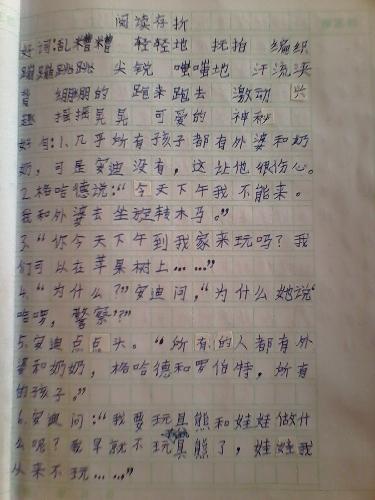 阅读存折
好词:乱糟糟 轻轻地 抚拍 编织
蹦蹦跳跳 尖锐 嗤嗤地 汗流浃
背 绷绷的 跑来跑去 激动 兴
趣 摇摇晃晃 可爱的 神秘
好句:1.几乎所有孩子都有外婆和奶
奶,可是安迪没有,这让他很伤心。
2.格哈德说:“今天下午我不能来。
我和外婆去坐旋转木马。”
3.“你今天下午到我家来玩吗?我
们可以在苹果树上……”
4.“为什么?”安迪问,“为什么她说‘
哈啰,警察’?”
5.安迪点点头。“所有的人都有外
婆和奶奶,格哈德和罗伯特,所有
的孩子。”
6.安迪问:“我要玩具熊和娃娃做什
么呢?我早就不玩具熊了,娃娃我
从来不玩……”